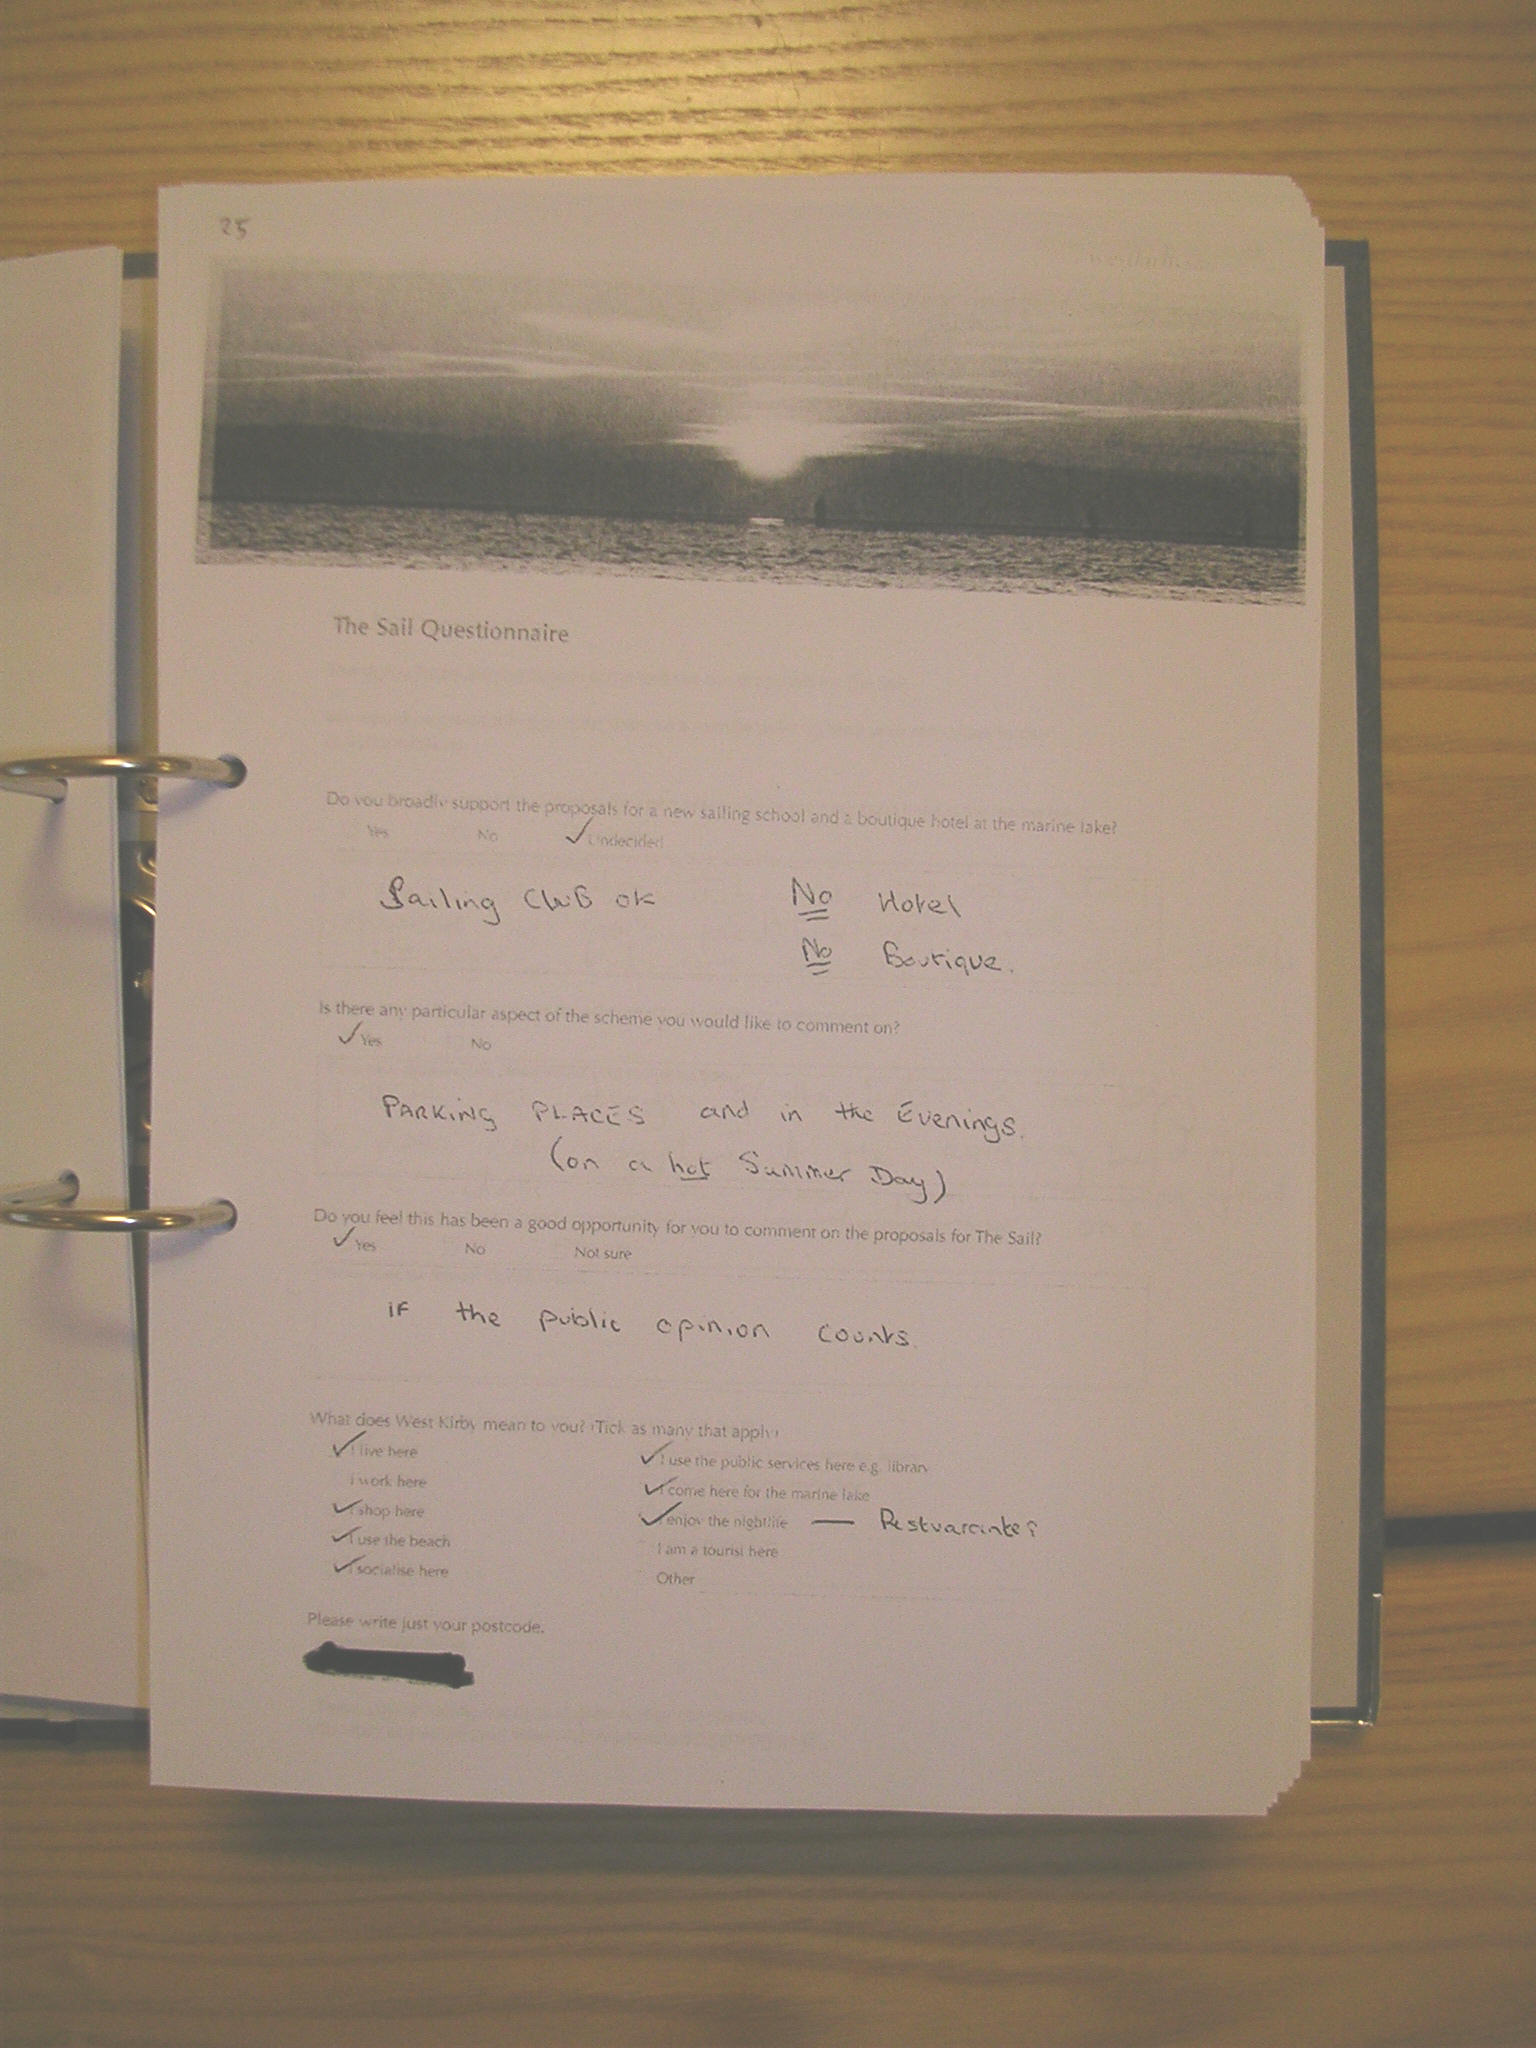 25
The Sail Questionnaire
Do you broadly support the proposals for a new sailing school and a boutique hotel at the marine lake?
Yes No ✓ Undecided
Sailing Club ok No Hotel
No Boutique.
Is there any particular aspect of the scheme you would like to comment on?
✓ Yes No
PARKING PLACES and in the Evenings.
(on a hot Summer Day)
Do you feel this has been a good opportunity for you to comment on the proposals for The Sail?
✓ Yes No Not sure
if the public opinion counts.
What does West Kirby mean to you? (Tick as many that apply)
✓ I live here ✓ I use the public services here e.g. library
I work here ✓ I come here for the marine lake
✓ I shop here ✓ I enjoy the nightlife — Restuarante?
✓ I use the beach I am a tourist here
✓ I socialise here Other
Please write just your postcode.